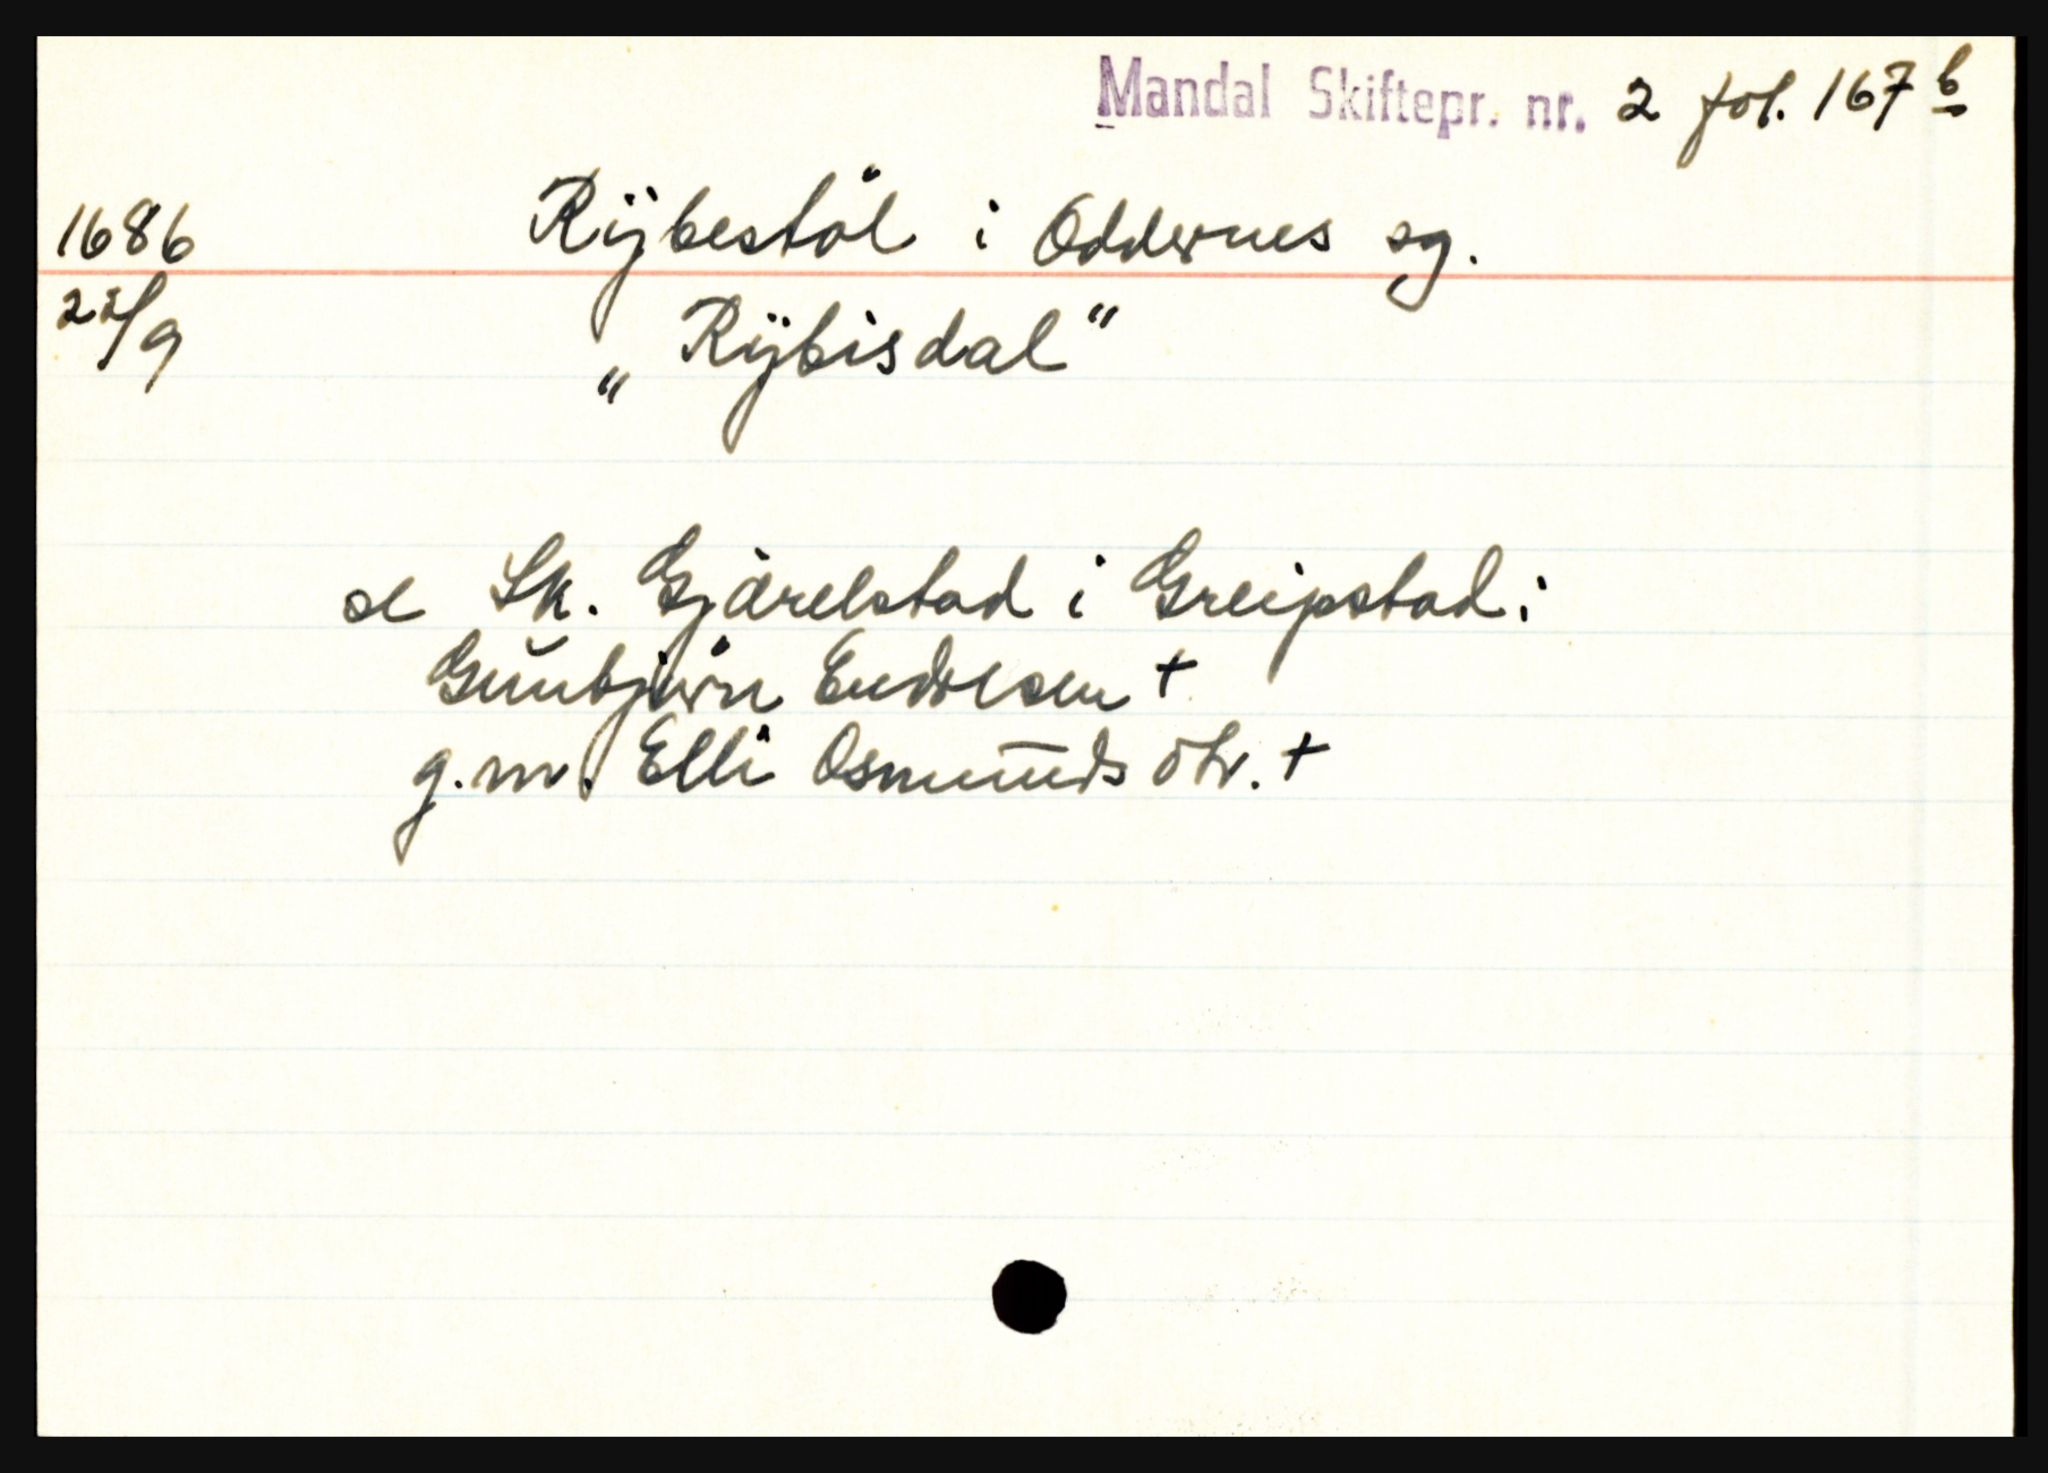 Mandal Skiftepr. nr. 2 fol. 167 b
1686 Rÿbestöl i Oddernes sg.
22/9 „Rÿbisdal"
se Sk. Gjärelstad i Greipstad:
Gunbjörn Endresen +
g.m. Elli Osmunds dtr. +